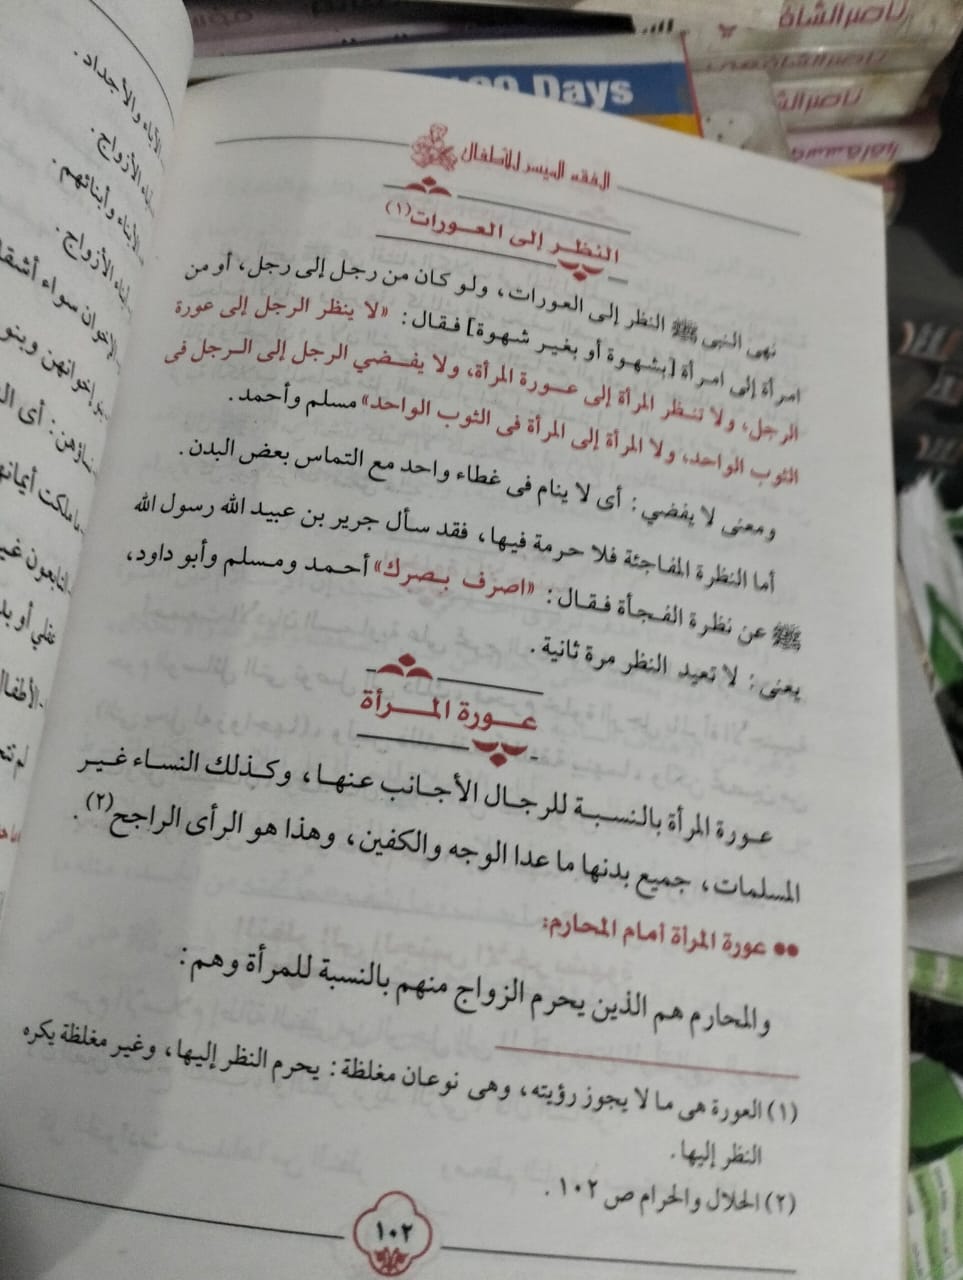 ناصر الشاف
ناصر الش
100 Days
الفقه الميسر للأطفال
النظر إلى العورات(١)
نهى النبى ﷺ النظر إلى العورات، ولو كان من رجل إلى رجل، أو من
امرأة إلى امرأة [بشهوة أو بغير شهوة] فقال: «لا ينظر الرجل إلى عورة
الرجل، ولا تنظر المرأة إلى عورة المرأة، ولا يفضي الرجل إلى الرجل فى
الثوب الواحد، ولا المرأة إلى المرأة فى الثوب الواحد» مسلم وأحمد.
ومعنى لا يفضي: أى لا ينام فى غطاء واحد مع التماس بعض البدن.
أما النظرة المفاجئة فلا حرمة فيها، فقد سأل جرير بن عبيد الله رسول الله
ﷺ عن نظرة الفجأة فقال: «اصرف بصرك» أحمد ومسلم وأبو داود،
يعنى: لا تعيد النظر مرة ثانية.
عورة المرأة
عورة المرأة بالنسبة للرجال الأجانب عنها، وكذلك النساء غير
المسلمات، جميع بدنها ما عدا الوجه والكفين، وهذا هو الرأى الراجح(٢).
●● عورة المرأة أمام المحارم:
والمحارم هم الذين يحرم الزواج منهم بالنسبة للمرأة وهم:
(١) العورة هى ما لا يجوز رؤيته، وهى نوعان مغلظة: يحرم النظر إليها، وغير مغلظة يكره
النظر إليها.
(٢) الحلال والحرام ص ١٠٢.
١٠٢
الآباء والأجداد.
الأزواج.
الأبناء وأبنائهم.
الأزواج.
الإخوان سواء أشقا
إخوانهن وبنو
أى
ملكت أيمان
التابعون غير
أو
الأطفال
لم